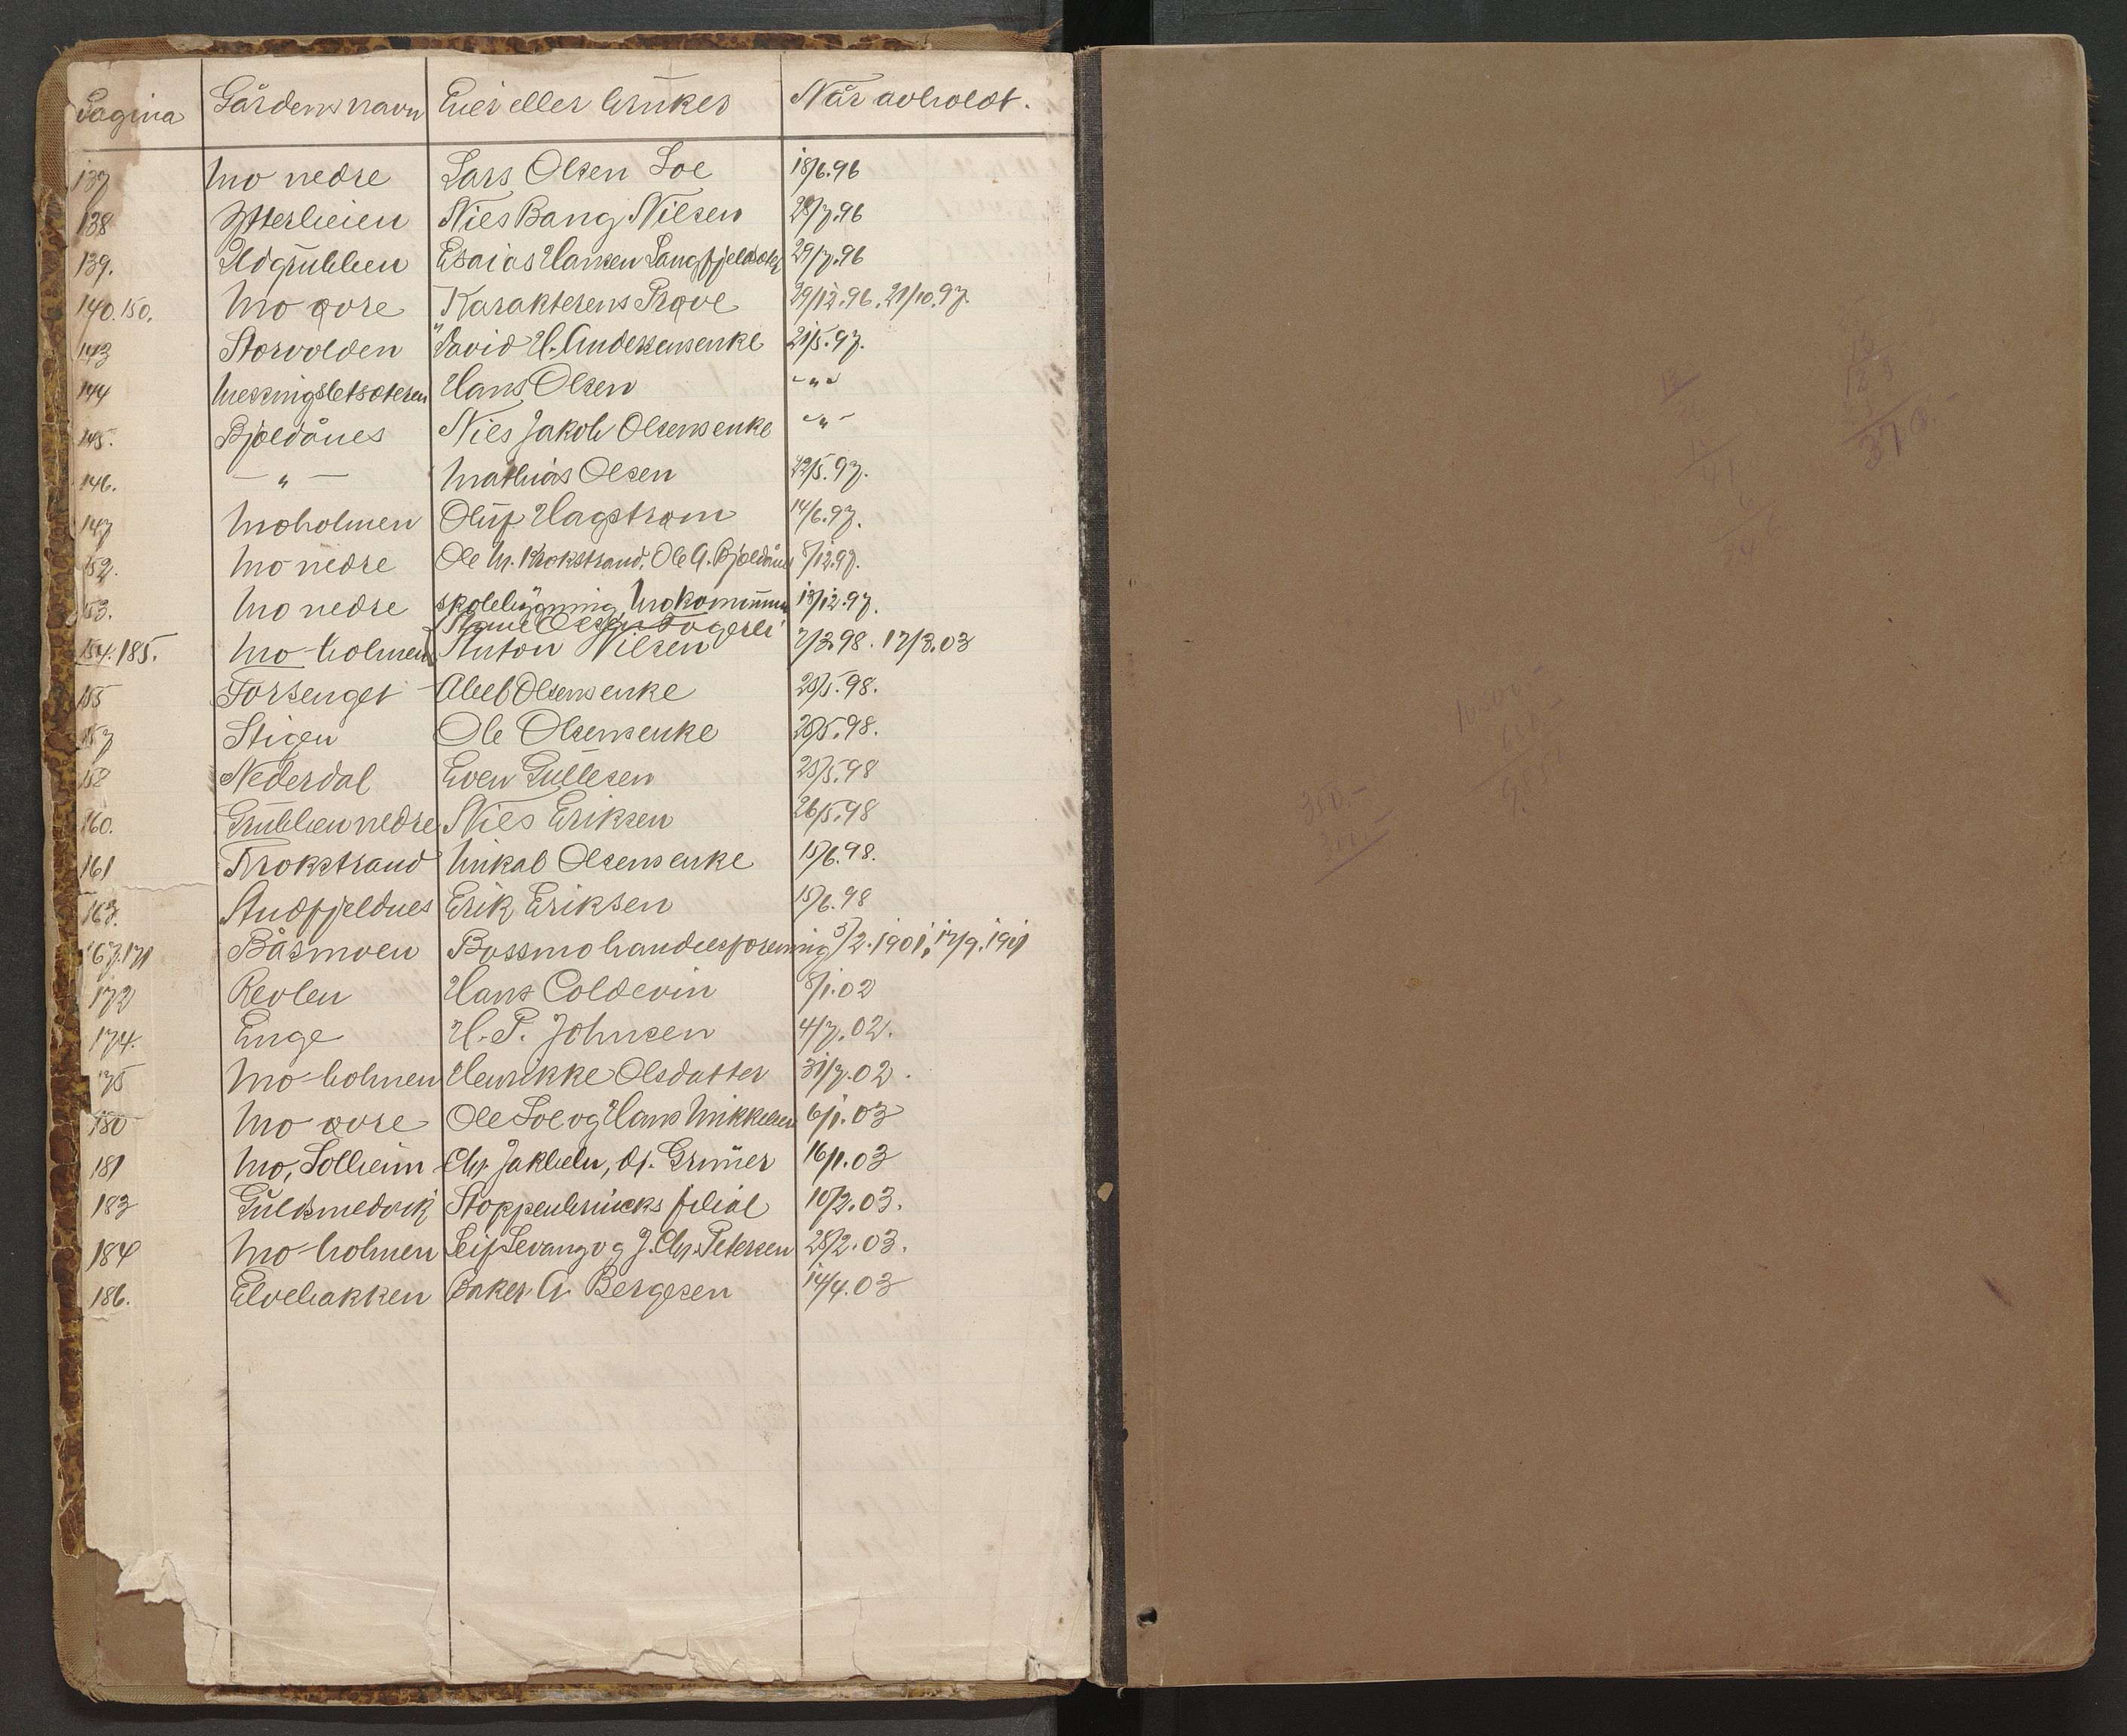 Pagina Gårdens navn Eier eller bruker Når avholdt.
137 Mo nedre Lars Olsen Loe 18/6.96
138 Ytterlien Niels Bang Nilsen 28/7.96
139. Ildgrubben Esaias Hansen Langfjeld 29/7.96
140.150. Mo øvre Karakterens Prøve 29/12.96. 21/10.97.
143 Storvolden David H. Andersens enke 21/5.97.
144 Messingsletsæteren Hans Olsen - " -
145. Bjeldånes Niels Jakob Olsens enke - " -
146. — " — Mathias Olsen 22/5.97.
147 Moholmen Oluf Hagstrøm 14/6.97.
152. Mo nedre Ole M. Krokstrand, Ole A. Bjeldånes 8/12.97.
153. Mo nedre skolebygning Mo kommune 13/12.97.
154.185. Mo-holmen Anton Nilsen 7/3.98. 17/3.03
155 Forsenget Abel Olsens enke 25/5.98.
157 Stigen Ole Olsens enke 25/5.98.
158 Nederdal Even Gullesen 25/5.98
160. Grubben nedre Niels Eriksen 26/5.98
161 Krokstrand Mikal Olsens enke 15/6.98.
163. Andfjeldnes Erik Eriksen 15/6.98
167.171 Båsmoen Bossmo handelsforening 5/2.1901, 17/9.1901
172 Revlen Hans Coldevin 8/1.02
174. Enge H. P. Johnsen 4/7.02.
175 Mo-holmen Henrikke Olsdatter 31/7.02.
180 Mo øvre Ole Loe og Hans Mikkelsen 6/1.03
181 Mo, Solheim Chr. Jakhelln, dr. Grüner 16/1.03
183 Guldsmedvik Stoppenbrincks filial 10/2.03.
184 Mo-holmen Leif Levang og J. Chr. Petersen 28/2.03.
186. Elvebakken Baker A. Bergesen 14/4.03
12
370.-
350.-